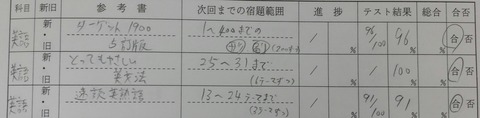 科目 新旧 参考書 次回までの宿題範囲 進捗 テスト結果 総合 合否
英語 新・旧 ターゲット1900 5訂版 1～400までの / % 96/100 96 % % 合 否
英語 新・旧 とってもやさしい 英文法 25～31まで / % / 100 % % 合 否
英語 新・旧 速読英熟語 13～24テーマまで / % 91/100 91 % % 合 否